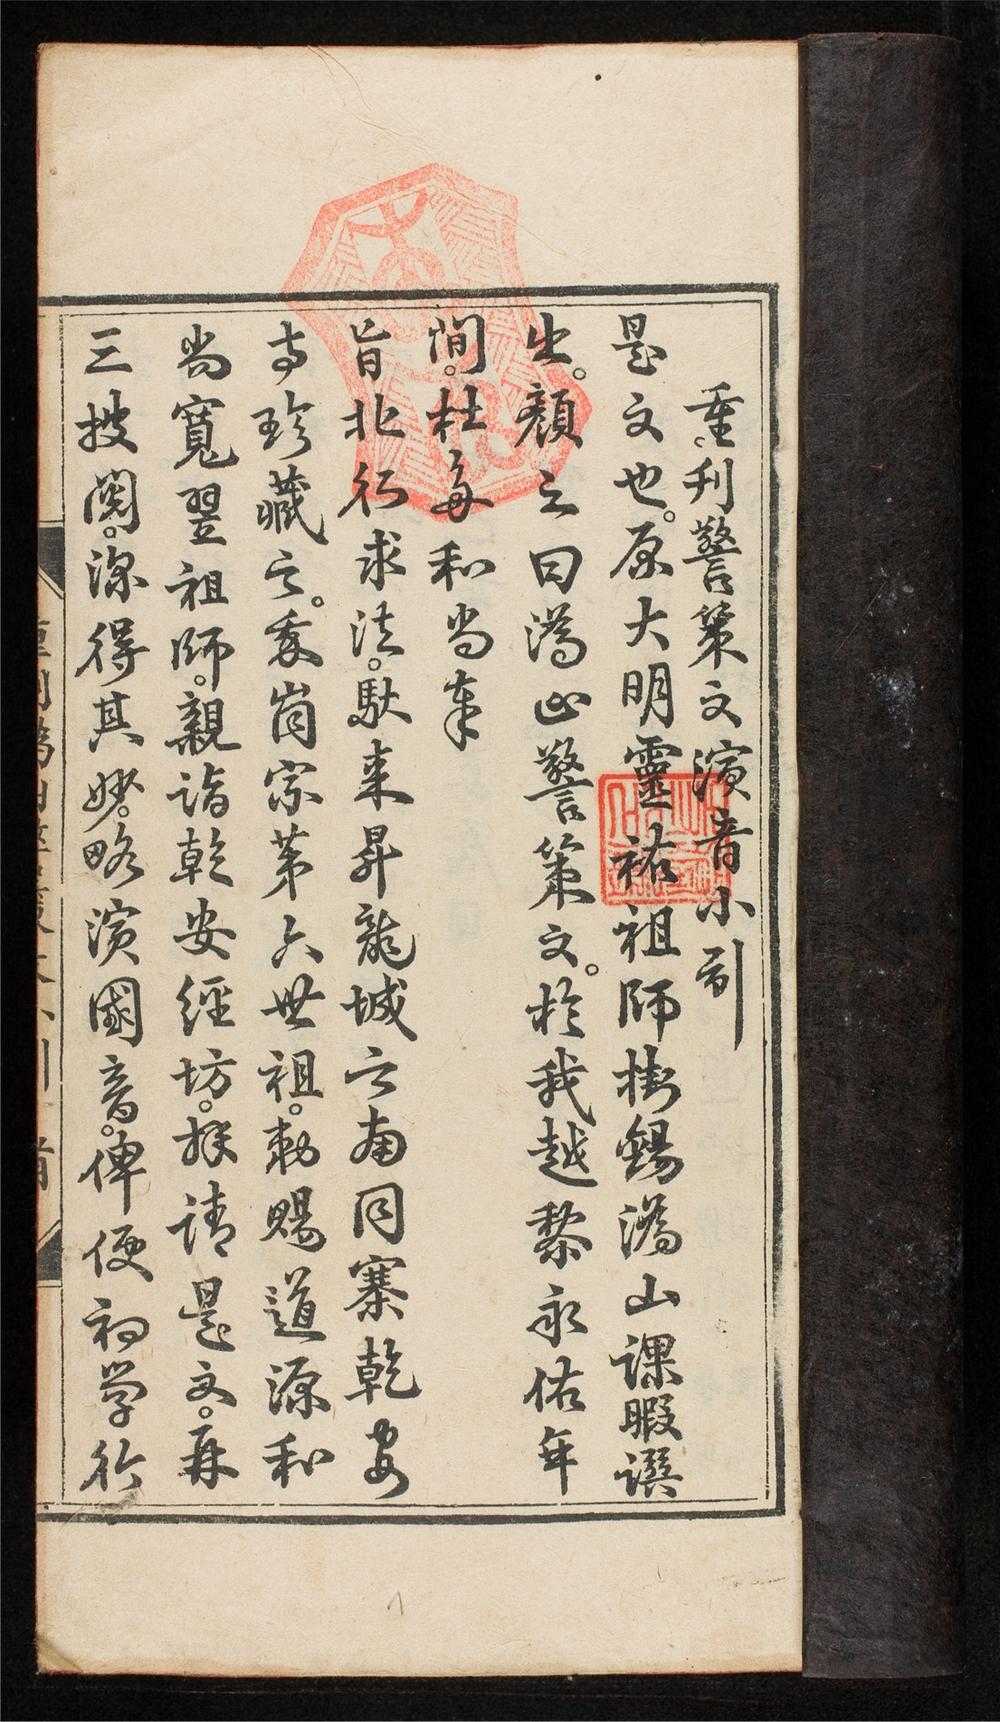 重刊警策文演音小引
是文也。原大明靈祐祖師掛錫溈山課暇譔
出。顏之曰溈山警策文。於我越黎永佑年
間。杜多和尚奉
旨北行求法。馱来昇龍城之南同寨乾安
寺珍藏之。爰崗宗第六世祖。勅賜道源和
尚寬翌祖師。親詣乾安經坊。拜請是文。再
三披閱。深得其妙。略演國音。俾便初学行